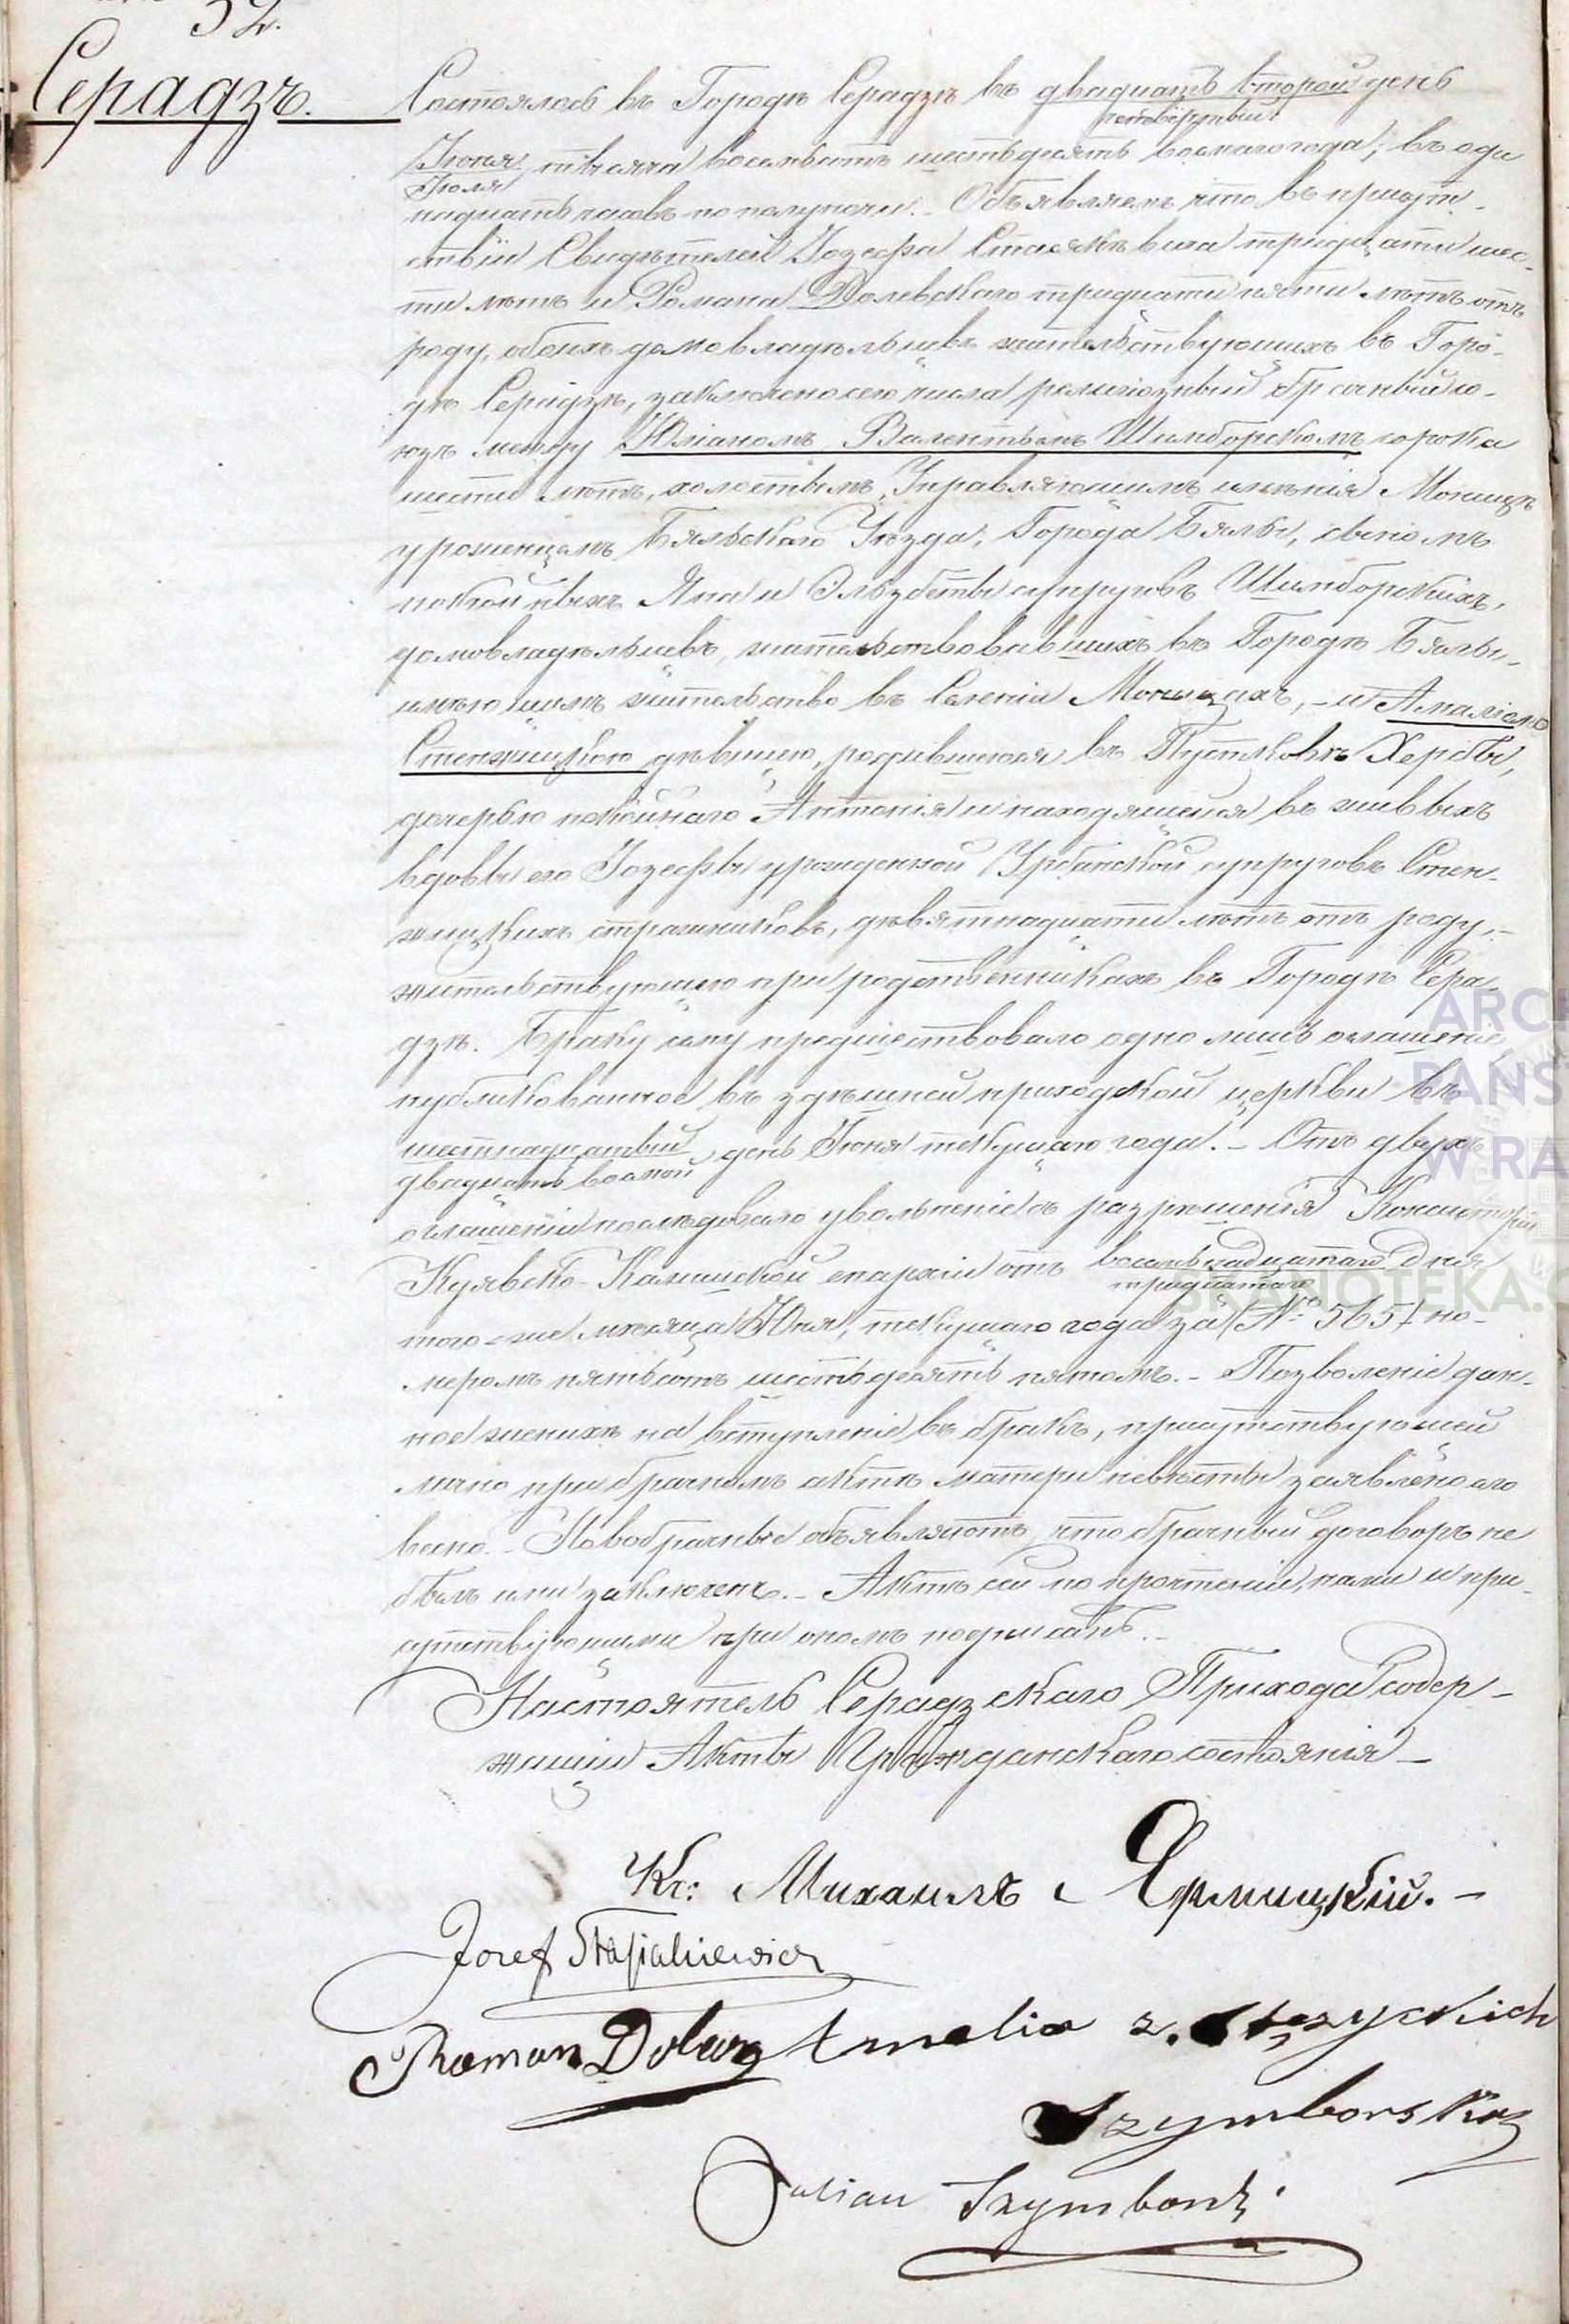 32.
Серадзъ.
Состоялось въ Городѣ Серадзѣ въ двадцать второй день
четвёртый
Іюня, тысяча восемьсотъ шестьдесятъ восмаго года, въ оди
Іюля
надцать часовъ пополуночи. - Объявляемъ что въ присут-
ствіи Свидѣтелей Іозефа тридцати шес-
ти лѣтъ и Романа тридцати пяти лѣтъ отъ
роду, обоихъ домовладѣльцевъ жительствующихъ въ Горо-
дѣ Серадзѣ, заключено сего числа религіозный брачный со-
юзъ между Юліаномъ Валентымъ Шимборскимъ сорока
шести лѣтъ, холостымъ, Управляющимъ имѣнія
уроженцемъ Бяльскаго Уѣзда, Города Бялы, сыномъ
покойныхъ Яна и Эльзбеты супруговъ Шимборскихъ,
домовладѣльцевъ, жительствовавшихъ въ Городѣ Бялы,-
имѣющимъ жительство въ Селеніи - и Амаліею
Стенжицкою дѣвицею, родившеюся въ Пустковѣ Хербы,
дочерью покойнаго Антонія и находящейся въ живыхъ
вдовы его Іозефы урожденной Урбанской супруговъ Стен-
жицкихъ стражниковъ, девятнадцати лѣтъ отъ роду,-
жительствующею при родственникахъ въ Городѣ Сера-
дзѣ. Браку сему предшествовало одно лишь оглашеніе
публикованное въ здѣшней приходской церкви въ
шестнадцатый день Іюня текущаго года. - Отъ двухъ
двадцать восмой
оглашеній послѣдовало увольненіе съ разрѣшенія Консисторіи
Куявско-Калишской епархіи отъ восемьнадцатаго Дня
тридцатаго
того-же мѣсяца Юня, текущаго года за (№ 565) но-
меромъ пятьсотъ шестьдесятъ пятомъ. - Позволеніе дан-
ное на вступленіе въ бракъ, присутствующей
лично при брачномъ актѣ матери невѣсты заявлено
Новобрачные объявляютъ, что брачный договоръ не
былъ ими заключенъ. - Актъ сей по прочтеніи, нами и при-
сутствующими при ономъ подписанъ.-
Настоятель Серадзскаго Прихода Содер-
жащій Акты Гражданскаго состоянія -
Кс: Михаилъ -
Józef
Roman Amelia z
Szymborska
Julian Szymborski
ARCH
PAŃST
W RA
SKANOTEKA.